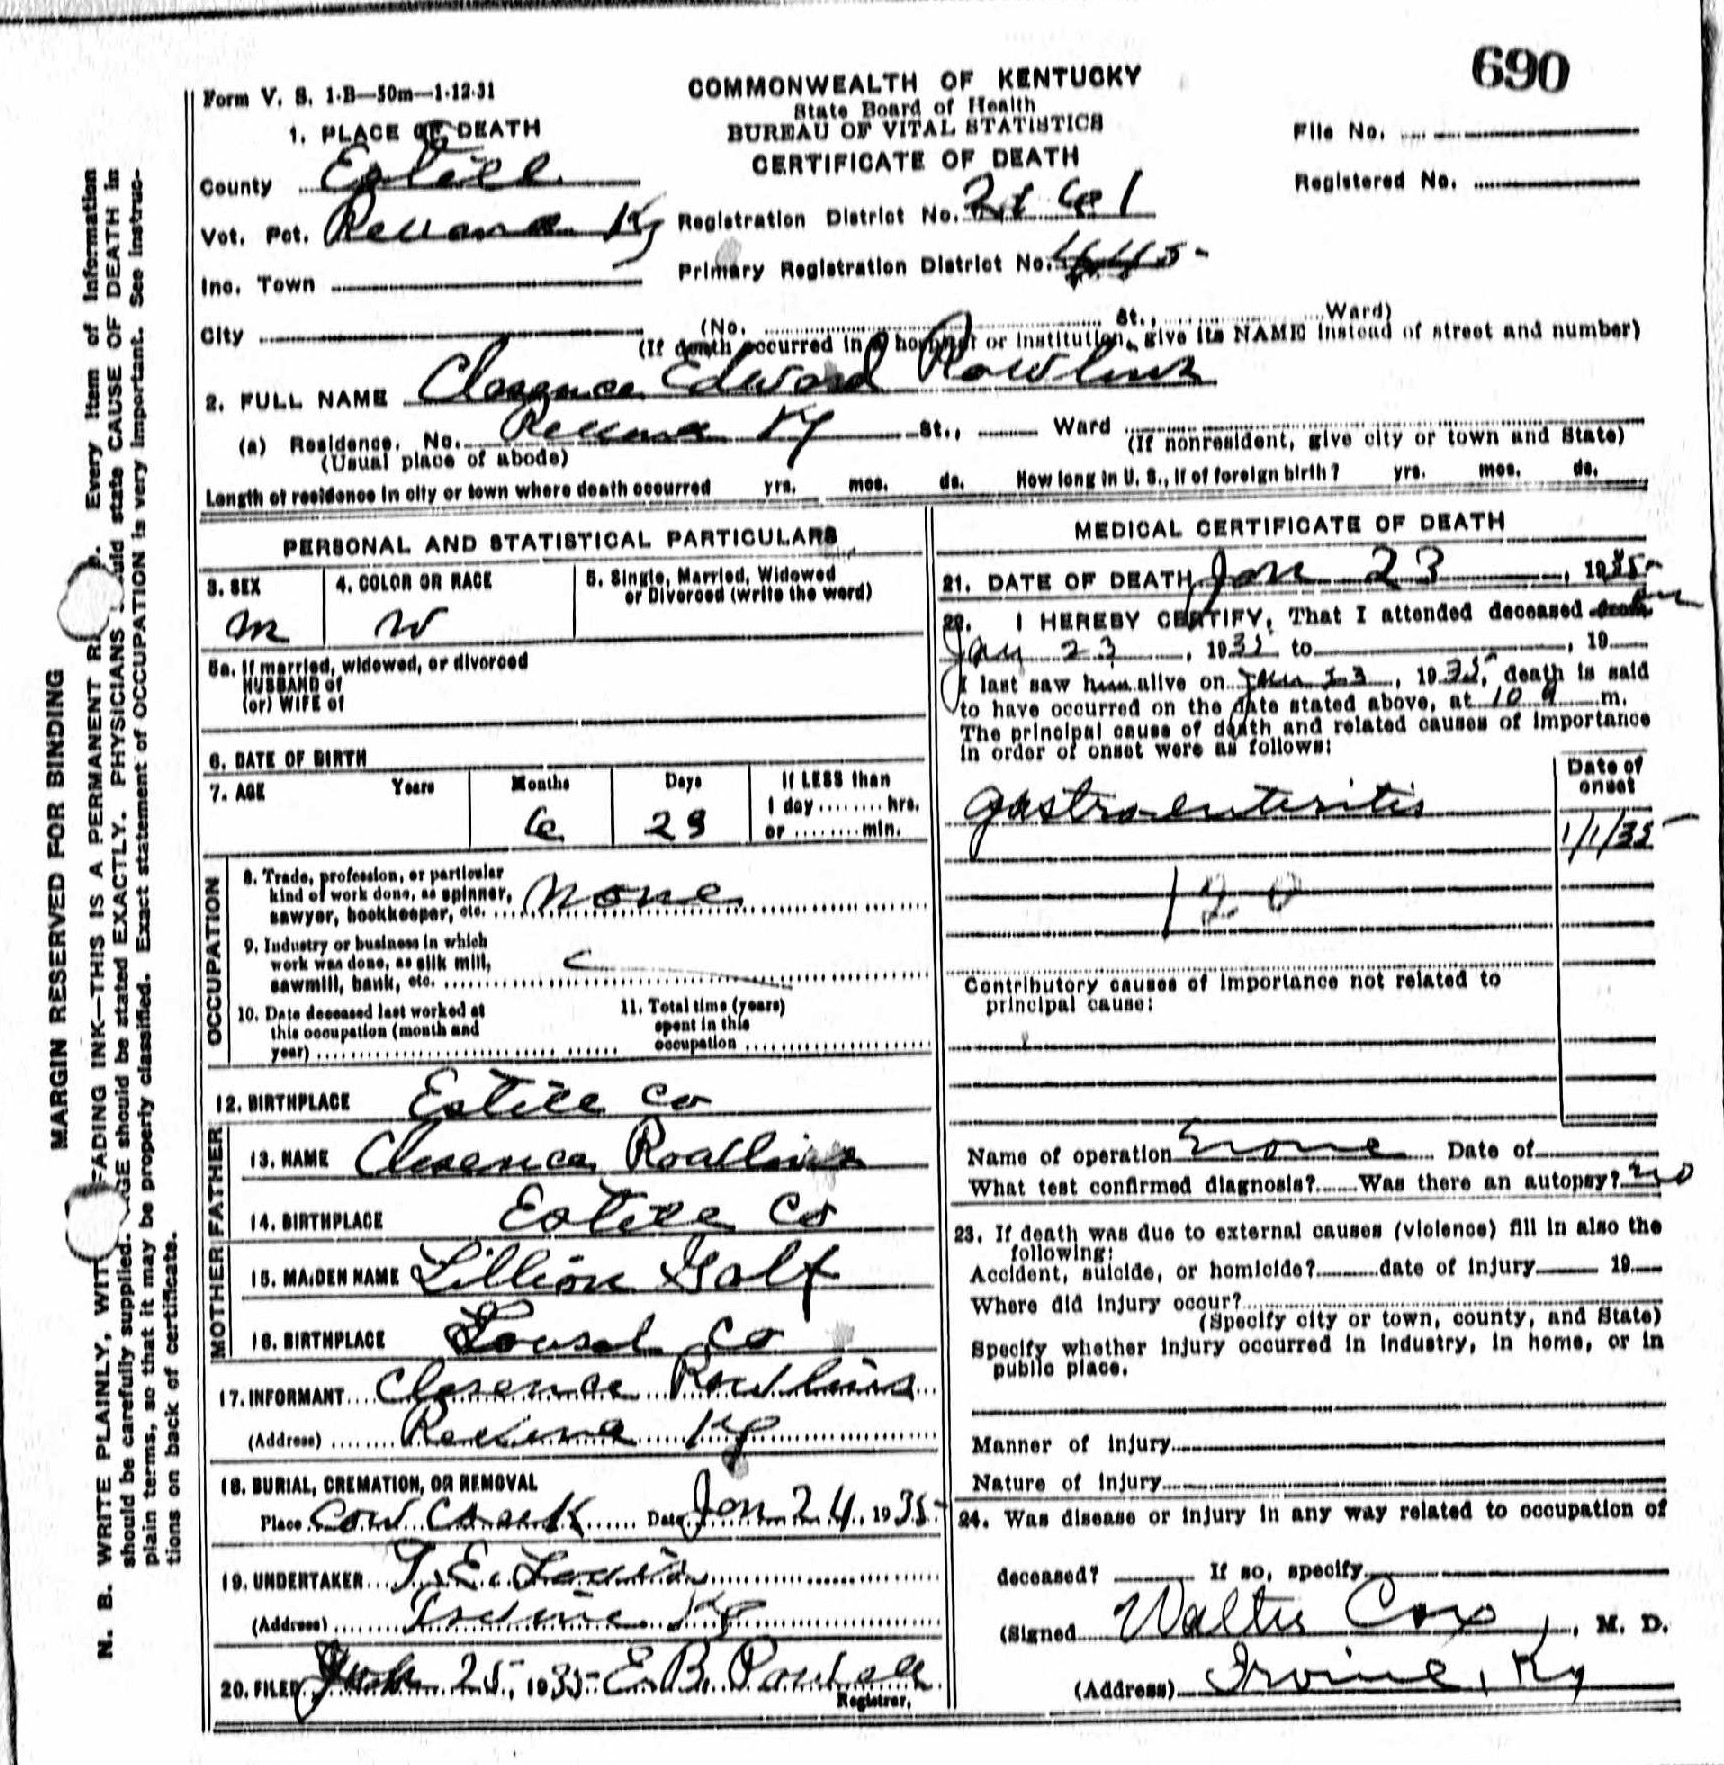 690
Form V. S. 1-B—50m—1-12-31
COMMONWEALTH OF KENTUCKY
State Board of Health
BUREAU OF VITAL STATISTICS
CERTIFICATE OF DEATH
File No.
Registered No.
1. PLACE OF DEATH
County Estill
Vot. Pct. Ky
Registration District No.
Inc. Town
Primary Registration District No.
City (No. St., Ward)
(If death occurred in a hospital or institution, give its NAME instead of street and number)
2. FULL NAME Clarence Edward Rowlins
(a) Residence. No. Ky St., Ward (If nonresident, give city or town and State)
(Usual place of abode)
Length of residence in city or town where death occurred yrs. mos. ds. How long in U. S., if of foreign birth? yrs. mos. ds.
PERSONAL AND STATISTICAL PARTICULARS
3. SEX M
4. COLOR OR RACE W
5. Single, Married, Widowed
or Divorced (write the word)
5a. If married, widowed, or divorced
HUSBAND of
(or) WIFE of
6. DATE OF BIRTH
7. AGE Years Months Days If LESS than
1 day ........ hrs.
6 or ........ min.
OCCUPATION
8. Trade, profession, or particular
kind of work done, as spinner,
sawyer, bookkeeper, etc. None
9. Industry or business in which
work was done, as silk mill,
sawmill, bank, etc.
10. Date deceased last worked at
this occupation (month and
year)
11. Total time (years)
spent in this
occupation
12. BIRTHPLACE Estill Co
FATHER
13. NAME Clarence Roallins
14. BIRTHPLACE Estill Co
MOTHER
15. MAIDEN NAME Lillian
16. BIRTHPLACE Co
17. INFORMANT Clarence Rowlins
(Address) Ky
18. BURIAL, CREMATION, OR REMOVAL
Place Cow Creek Date Jan 24, 1935
19. UNDERTAKER T. E.
(Address) Irvine Ky
20. FILED 25, 1935 E. B.
Registrar.
MEDICAL CERTIFICATE OF DEATH
21. DATE OF DEATH Jan 23, 1935
22. I HEREBY CERTIFY, That I attended deceased from on
Jan 23, 1935 to , 19
I last saw him alive on Jan 23, 1935, death is said
to have occurred on the date stated above, at 10 a m.
The principal cause of death and related causes of importance
in order of onset were as follows:
Date of
onset
Gastroenteritis
1/1/35
120
Contributory causes of importance not related to
principal cause:
Name of operation None Date of
What test confirmed diagnosis? Was there an autopsy? no
23. If death was due to external causes (violence) fill in also the
following:
Accident, suicide, or homicide? date of injury 19
Where did injury occur?
(Specify city or town, county, and State)
Specify whether injury occurred in industry, in home, or in
public place.
Manner of injury
Nature of injury
24. Was disease or injury in any way related to occupation of
deceased? If so, specify
(Signed Walter Cox, M. D.
(Address) Irvine, Ky
MARGIN RESERVED FOR BINDING
N. B. WRITE PLAINLY, WITH FADING INK—THIS IS A PERMANENT Every item of information
should be carefully supplied. AGE should be stated EXACTLY. PHYSICIANS should state CAUSE OF DEATH in
plain terms, so that it may be properly classified. Exact statement of OCCUPATION is very important. See instruc-
tions on back of certificate.